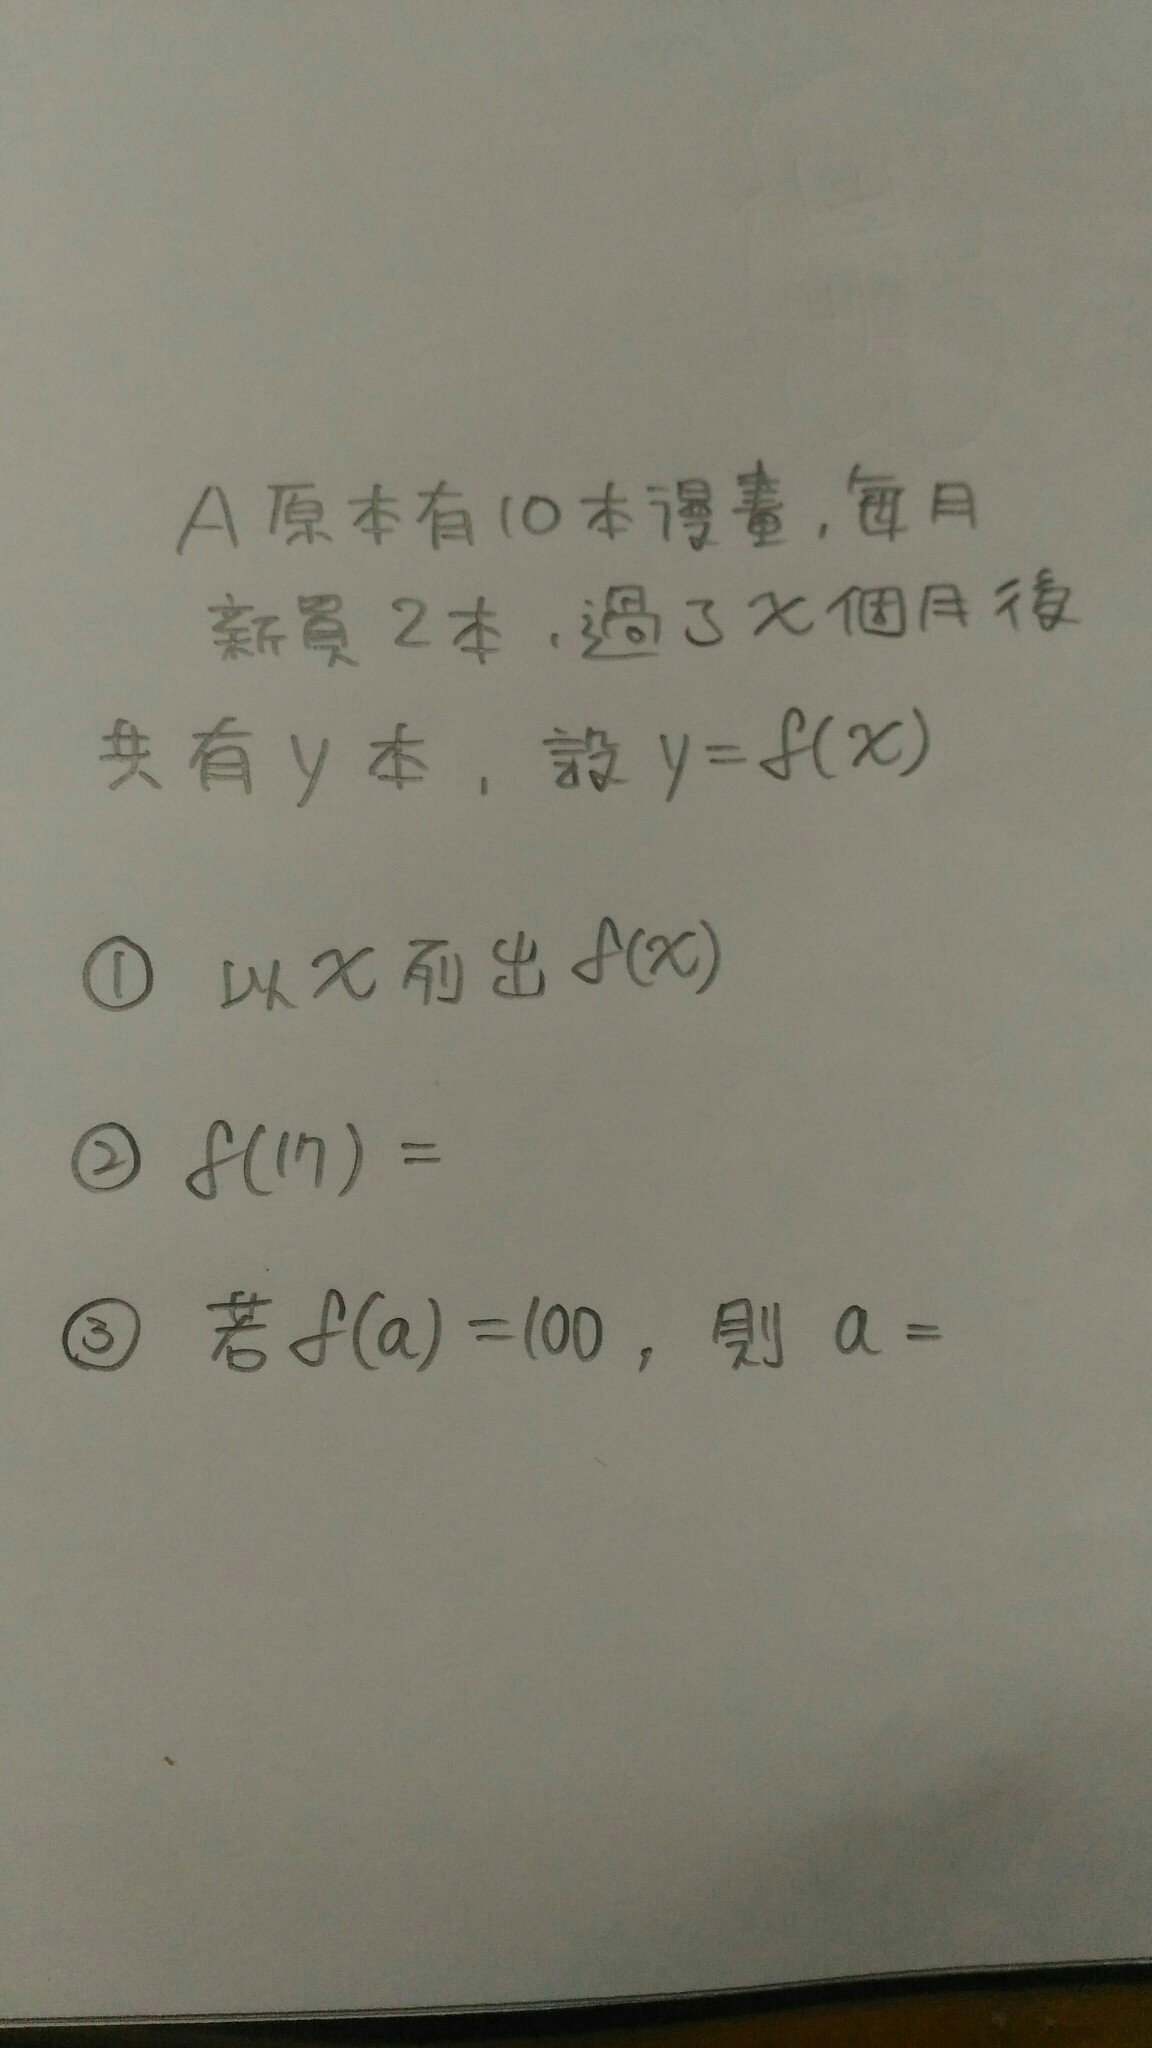 A原本有10本漫畫,每月
新買2本,過了x個月後
共有y本,設y=f(x)
① 以x列出f(x)
② f(17)=
③ 若f(a)=100,則a=